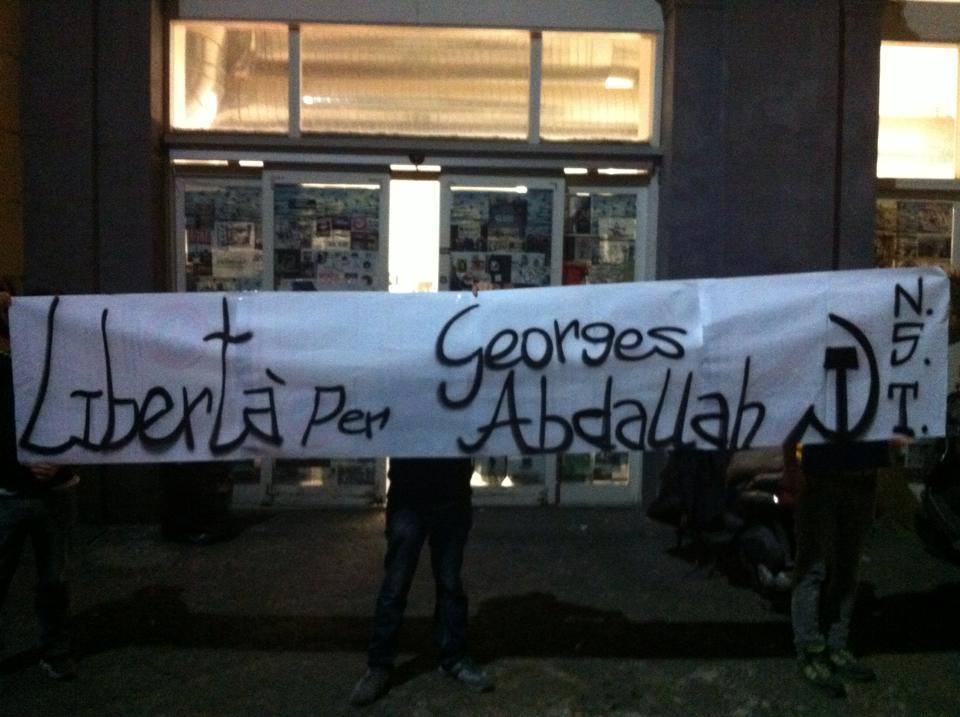 Libertà per Georges
Abdallah
N.
S.
T.